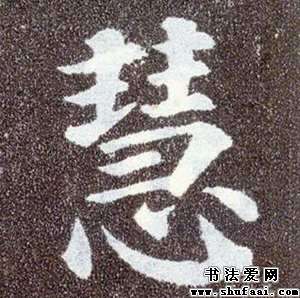 慧
书法爱网
www.shufaai.com